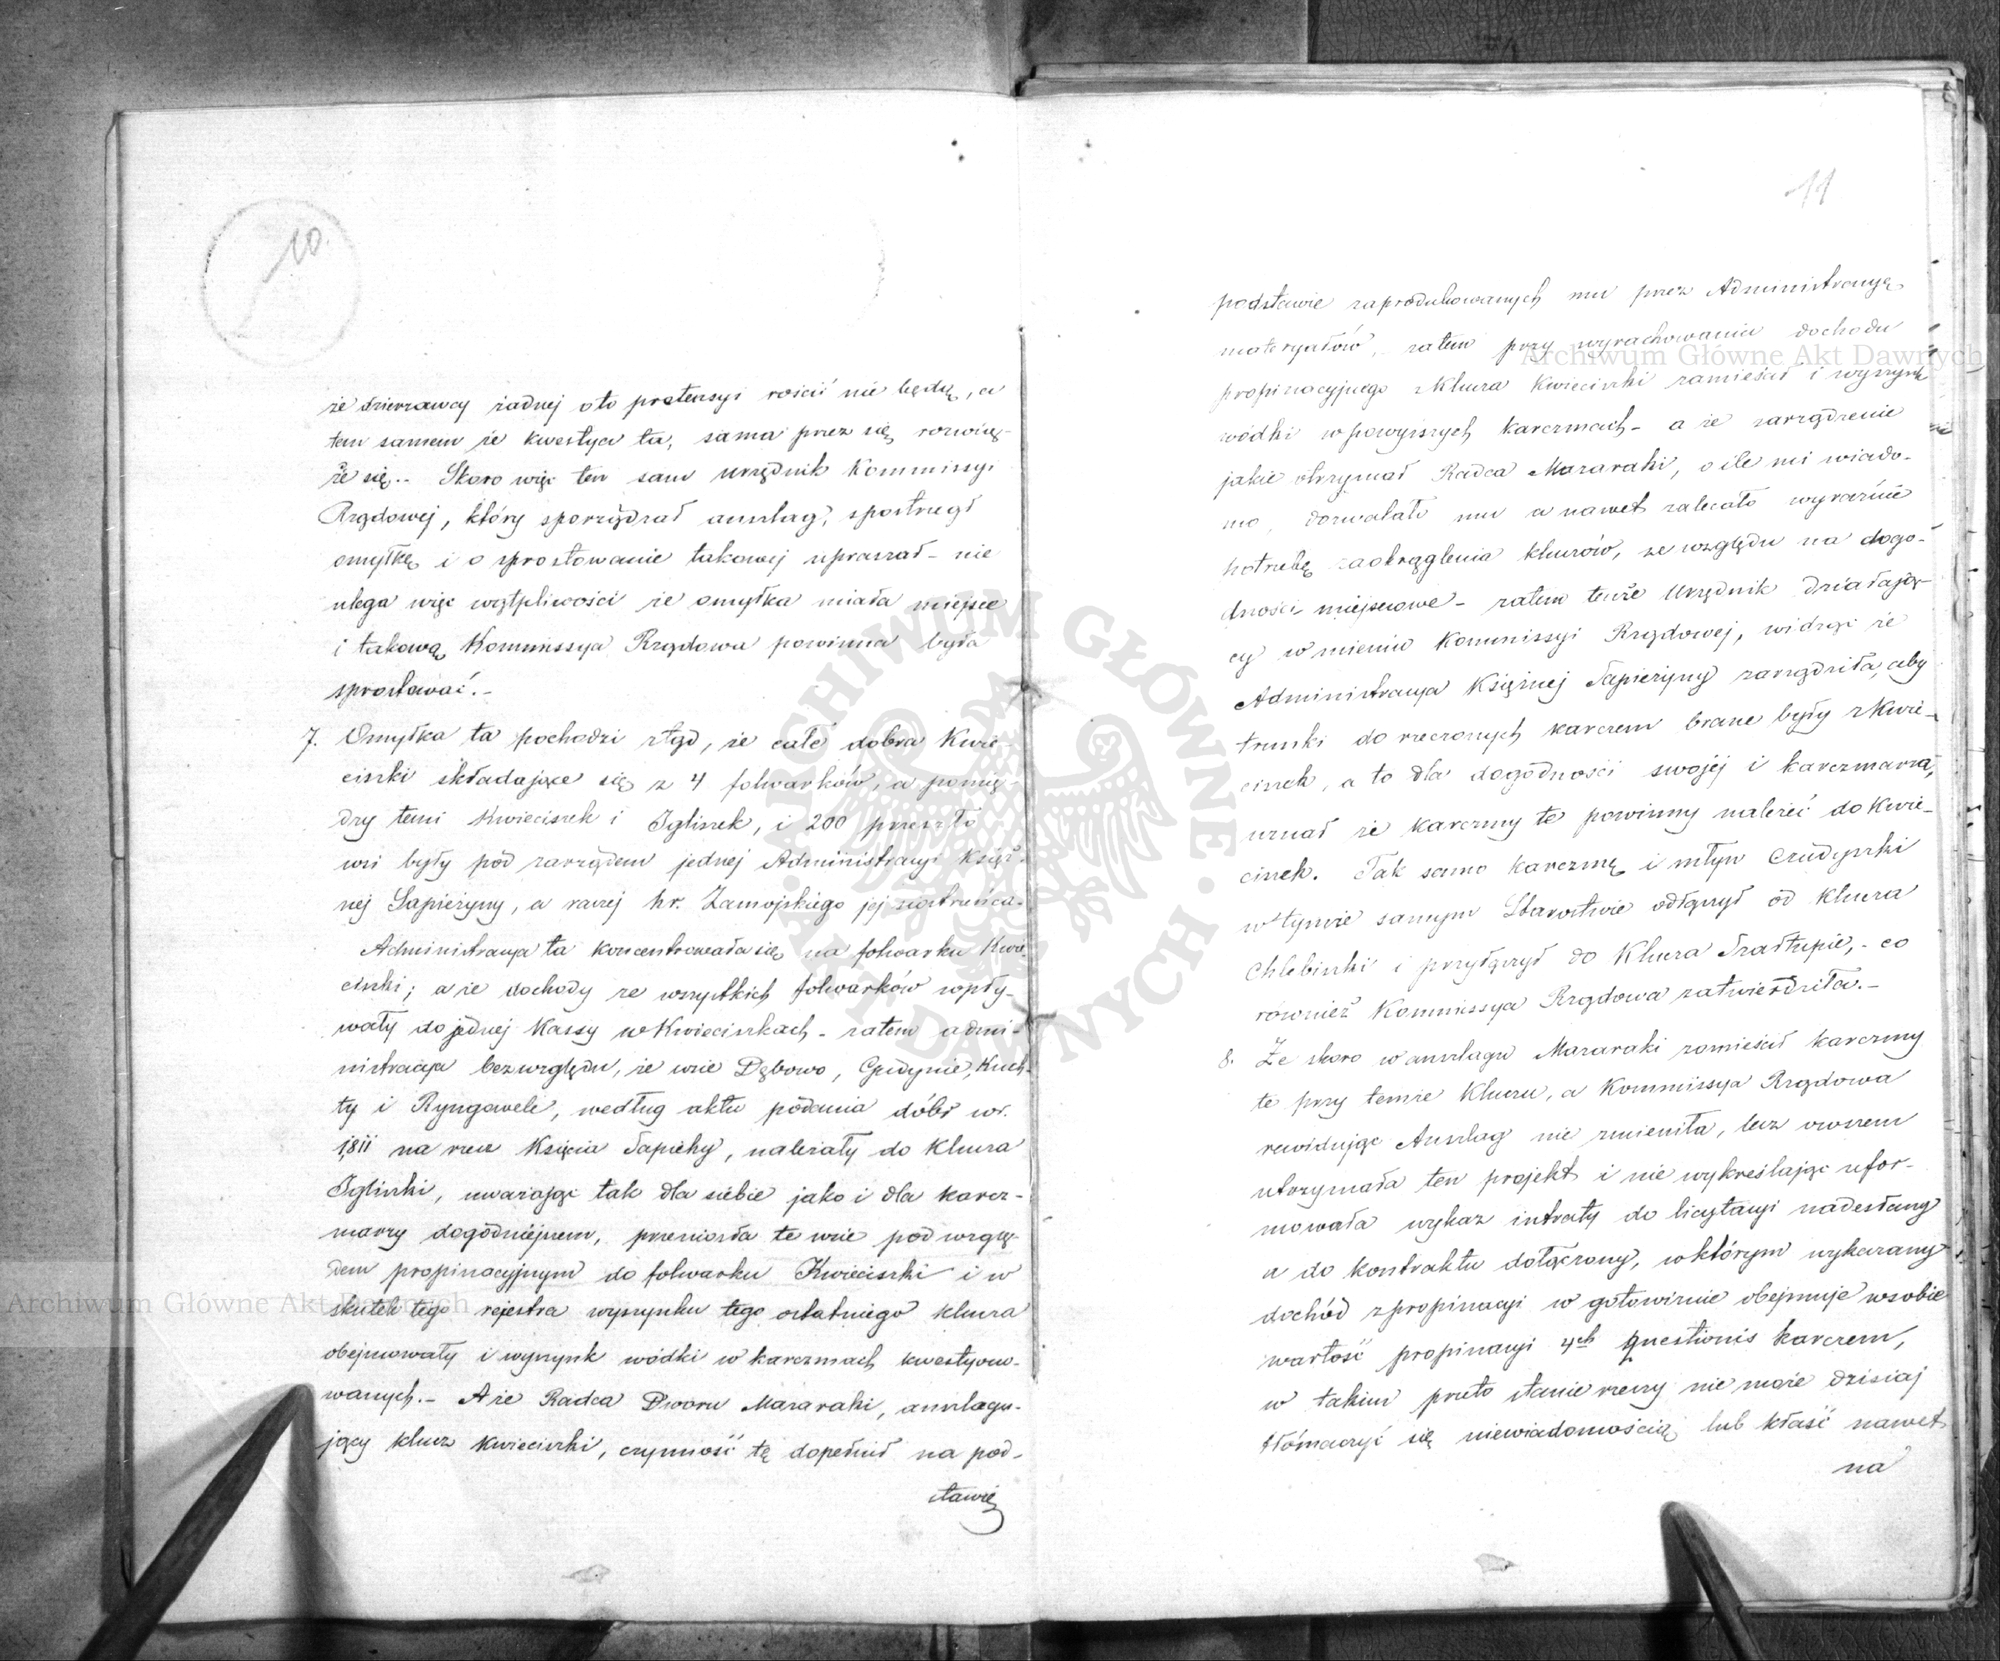 10.
że dzierzawcy żadnej oto pretensyi rościć nie będą, a
tem samem że kwestya ta, sama przez się rozwią-
że się.. Skoro więc ten sam urzędnik Kommissyi
Rządowej, który sporządzał anszlag, spostrzegł
omyłkę i o sprostowanie takowej upraszał - nie
ulega więc wątpliwości że omyłka miała miejsce
i takową Kommissya Rządowa powinna była
sprostować.-
7. Omyłka ta pochodzi stąd, że całe dobra Kwie-
ciszki składające się z 4 folwarków, a pomię-
dzy temi Kwieciszek i Igliszek, i 200 przeszło
wsi były pod zarządem jednej Administracyi Księż-
nej Sapieżyny, a raczej hr. Zamojskiego jej siostrzeńca.
Administracya ta koncentrowała się na folwarku Kwie-
ciszki; a że dochody ze wszystkich folwarków wpły-
wały do jednej Kassy w Kwieciszkach - zatem admi-
nistracya bez względu, że wsie Dębowo, Gudynie, Kuch-
ty i Ryngowele, według aktu podania dóbr w r.
1811 na rzecz Księcia Sapiehy, należały do Klucza
Igliszki, uważając tak dla siebie jako i dla karcz-
marzy dogodniejszem, przeniosła te wsie pod wzglę-
dem propinacyjnym do folwarku Kwieciszki i w
skutek tego rejestra wyszynku tego ostatniego klucza
obejmowały i wyszynk wódki w karczmach kwestyono-
wanych.- A że Radca Dworu Mazaraki, anszlagu-
jący klucz Kwieciszki, czynność tę dopełnił na pod-
stawie
11
podstawie zaprodukowanych mu przez Administracyą
materyałów, zatem przy wyrachowaniu dochodu
propinacyjnego z Klucza Kwieciszki zamieścił i wyszynk
wódki w powyższych karczmach - a że zarządzenie
jakie otrzymał Radca Mazaraki, o ile mi wiado-
mo, dozwalało mu a nawet zalecało wyraźnie
potrzebę zaokrąglenia kluczów, ze względu na dogo-
dności miejscowe - zatem tenże Urzędnik działają-
cy w imieniu Kommissyi Rządowej, widząc że
Administracya Księżnej Sapieżyny zarządziła, aby
trunki do rzeczonych karczem brane były z Kwie-
ciszek, a to dla dogodności swojej i karczmarza,
uznał że karczmy te powinny należeć do Kwie-
ciszek. Tak samo karczmę i młyn Czudyszki
w tymże samym Starostwie odłączył od Klucza
Chlebiszki i przyłączył do Klucza Szadłupie, - co
również Kommissya Rządowa zatwierdziła.-
8. Że skoro w anszlagu Mazaraki zamieścił karczmy
te przy temże Kluczu, a Kommissya Rządowa
rewidując Anszlag nie zmieniła, lecz owszem
utrzymała ten projekt i nie wykreślając ufor-
mowała wykaz intraty do licytacyi nadesłany
a do kontraktu dołączony, w którym wykazany
dochód z propinacyi w gotowiznie obejmuje w sobie
wartość propinacyi 4ch questionis karczem,
w takim przeto stanie rzeczy nie może dzisiaj
tłómaczyć się niewiadomością lub kłaść nawet
na
Archiwum Główne Akt Dawnych
Archiwum Główne Akt Dawnych
ARCHIWUM GŁÓWNE AKT DAWNYCH